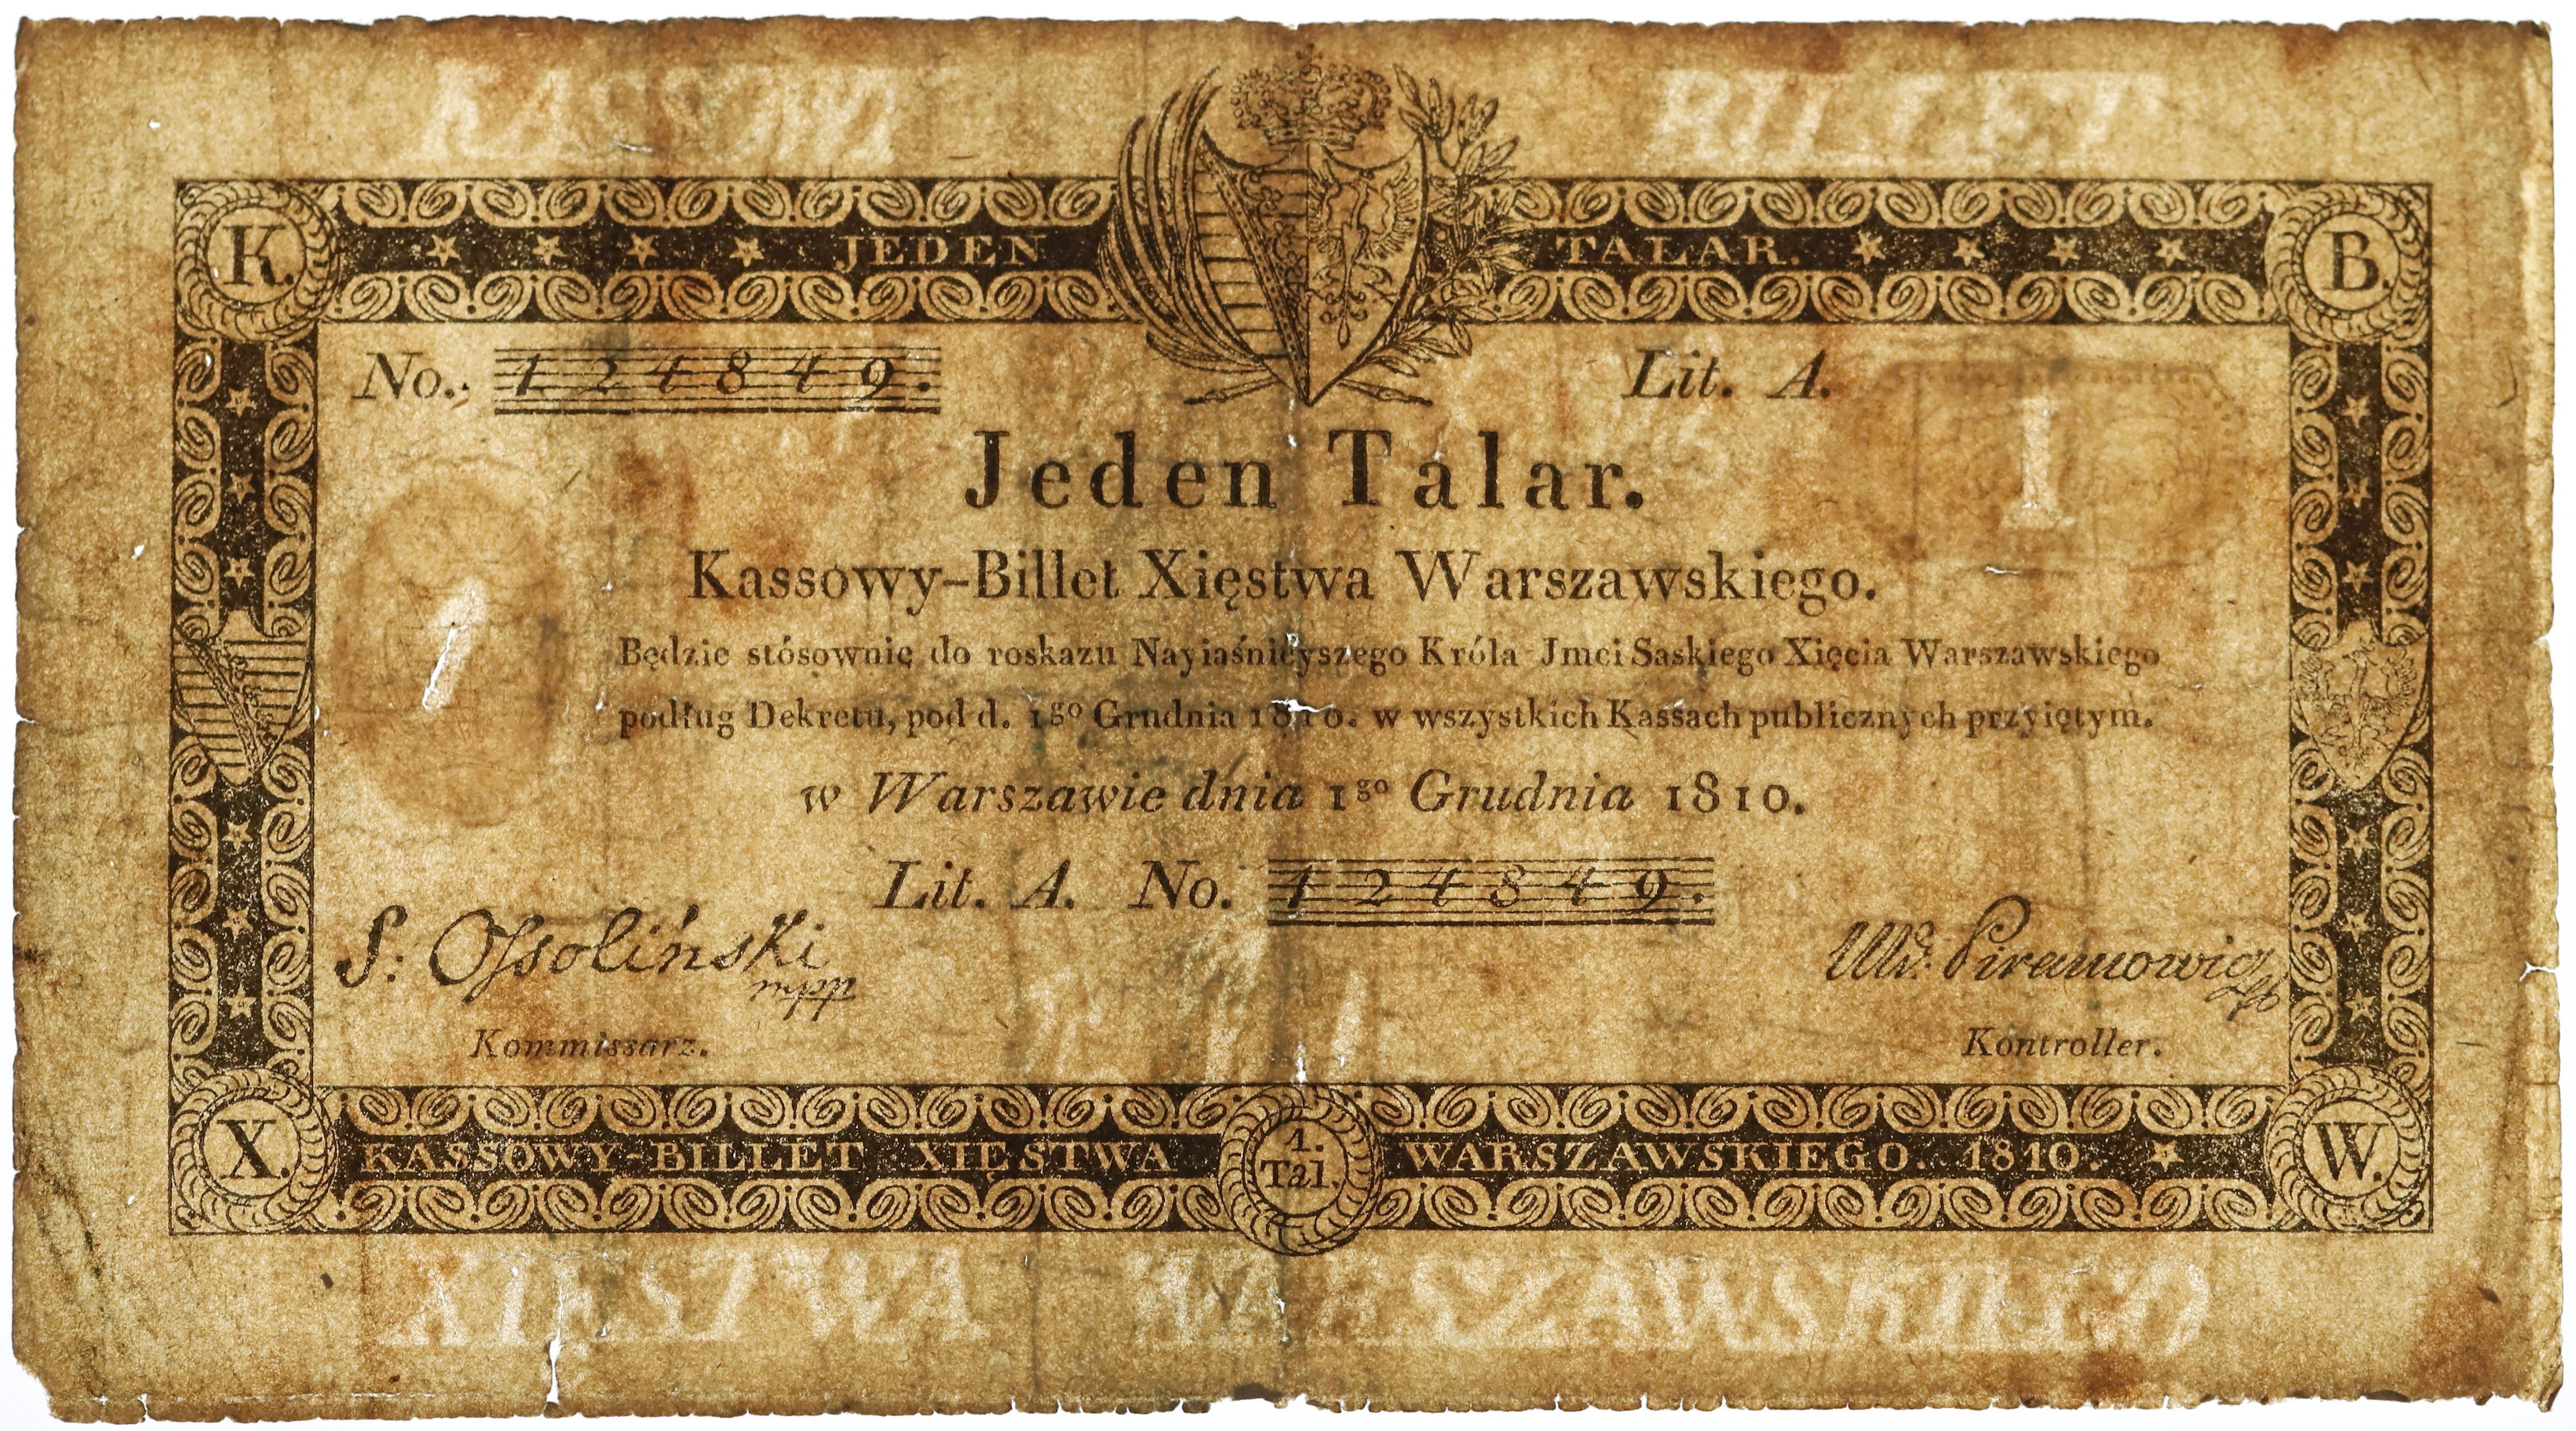 KASSOWY BILLET
K. JEDEN TALAR. B.
No. 124849. Lit. A.
1
Jeden Talar.
Kassowy-Billet Xięstwa Warszawskiego.
1
Będzie stósownie do roskazu Nayiaśnieyszego Króla Jmci Saskiego Xięcia Warszawskiego
podług Dekretu, pod d. 1go Grudnia 1810. w wszystkich Kassach publicznych przyiętym.
w Warszawie dnia 1go Grudnia 1810.
Lit. A. No. 124849.
S: Ossoliński mpp
Kommissarz.
Kontroller.
X. KASSOWY-BILLET XIĘSTWA 1. Tal. WARSZAWSKIEGO. 1810. W.
XIESTWA WARSZAWSKIEGO